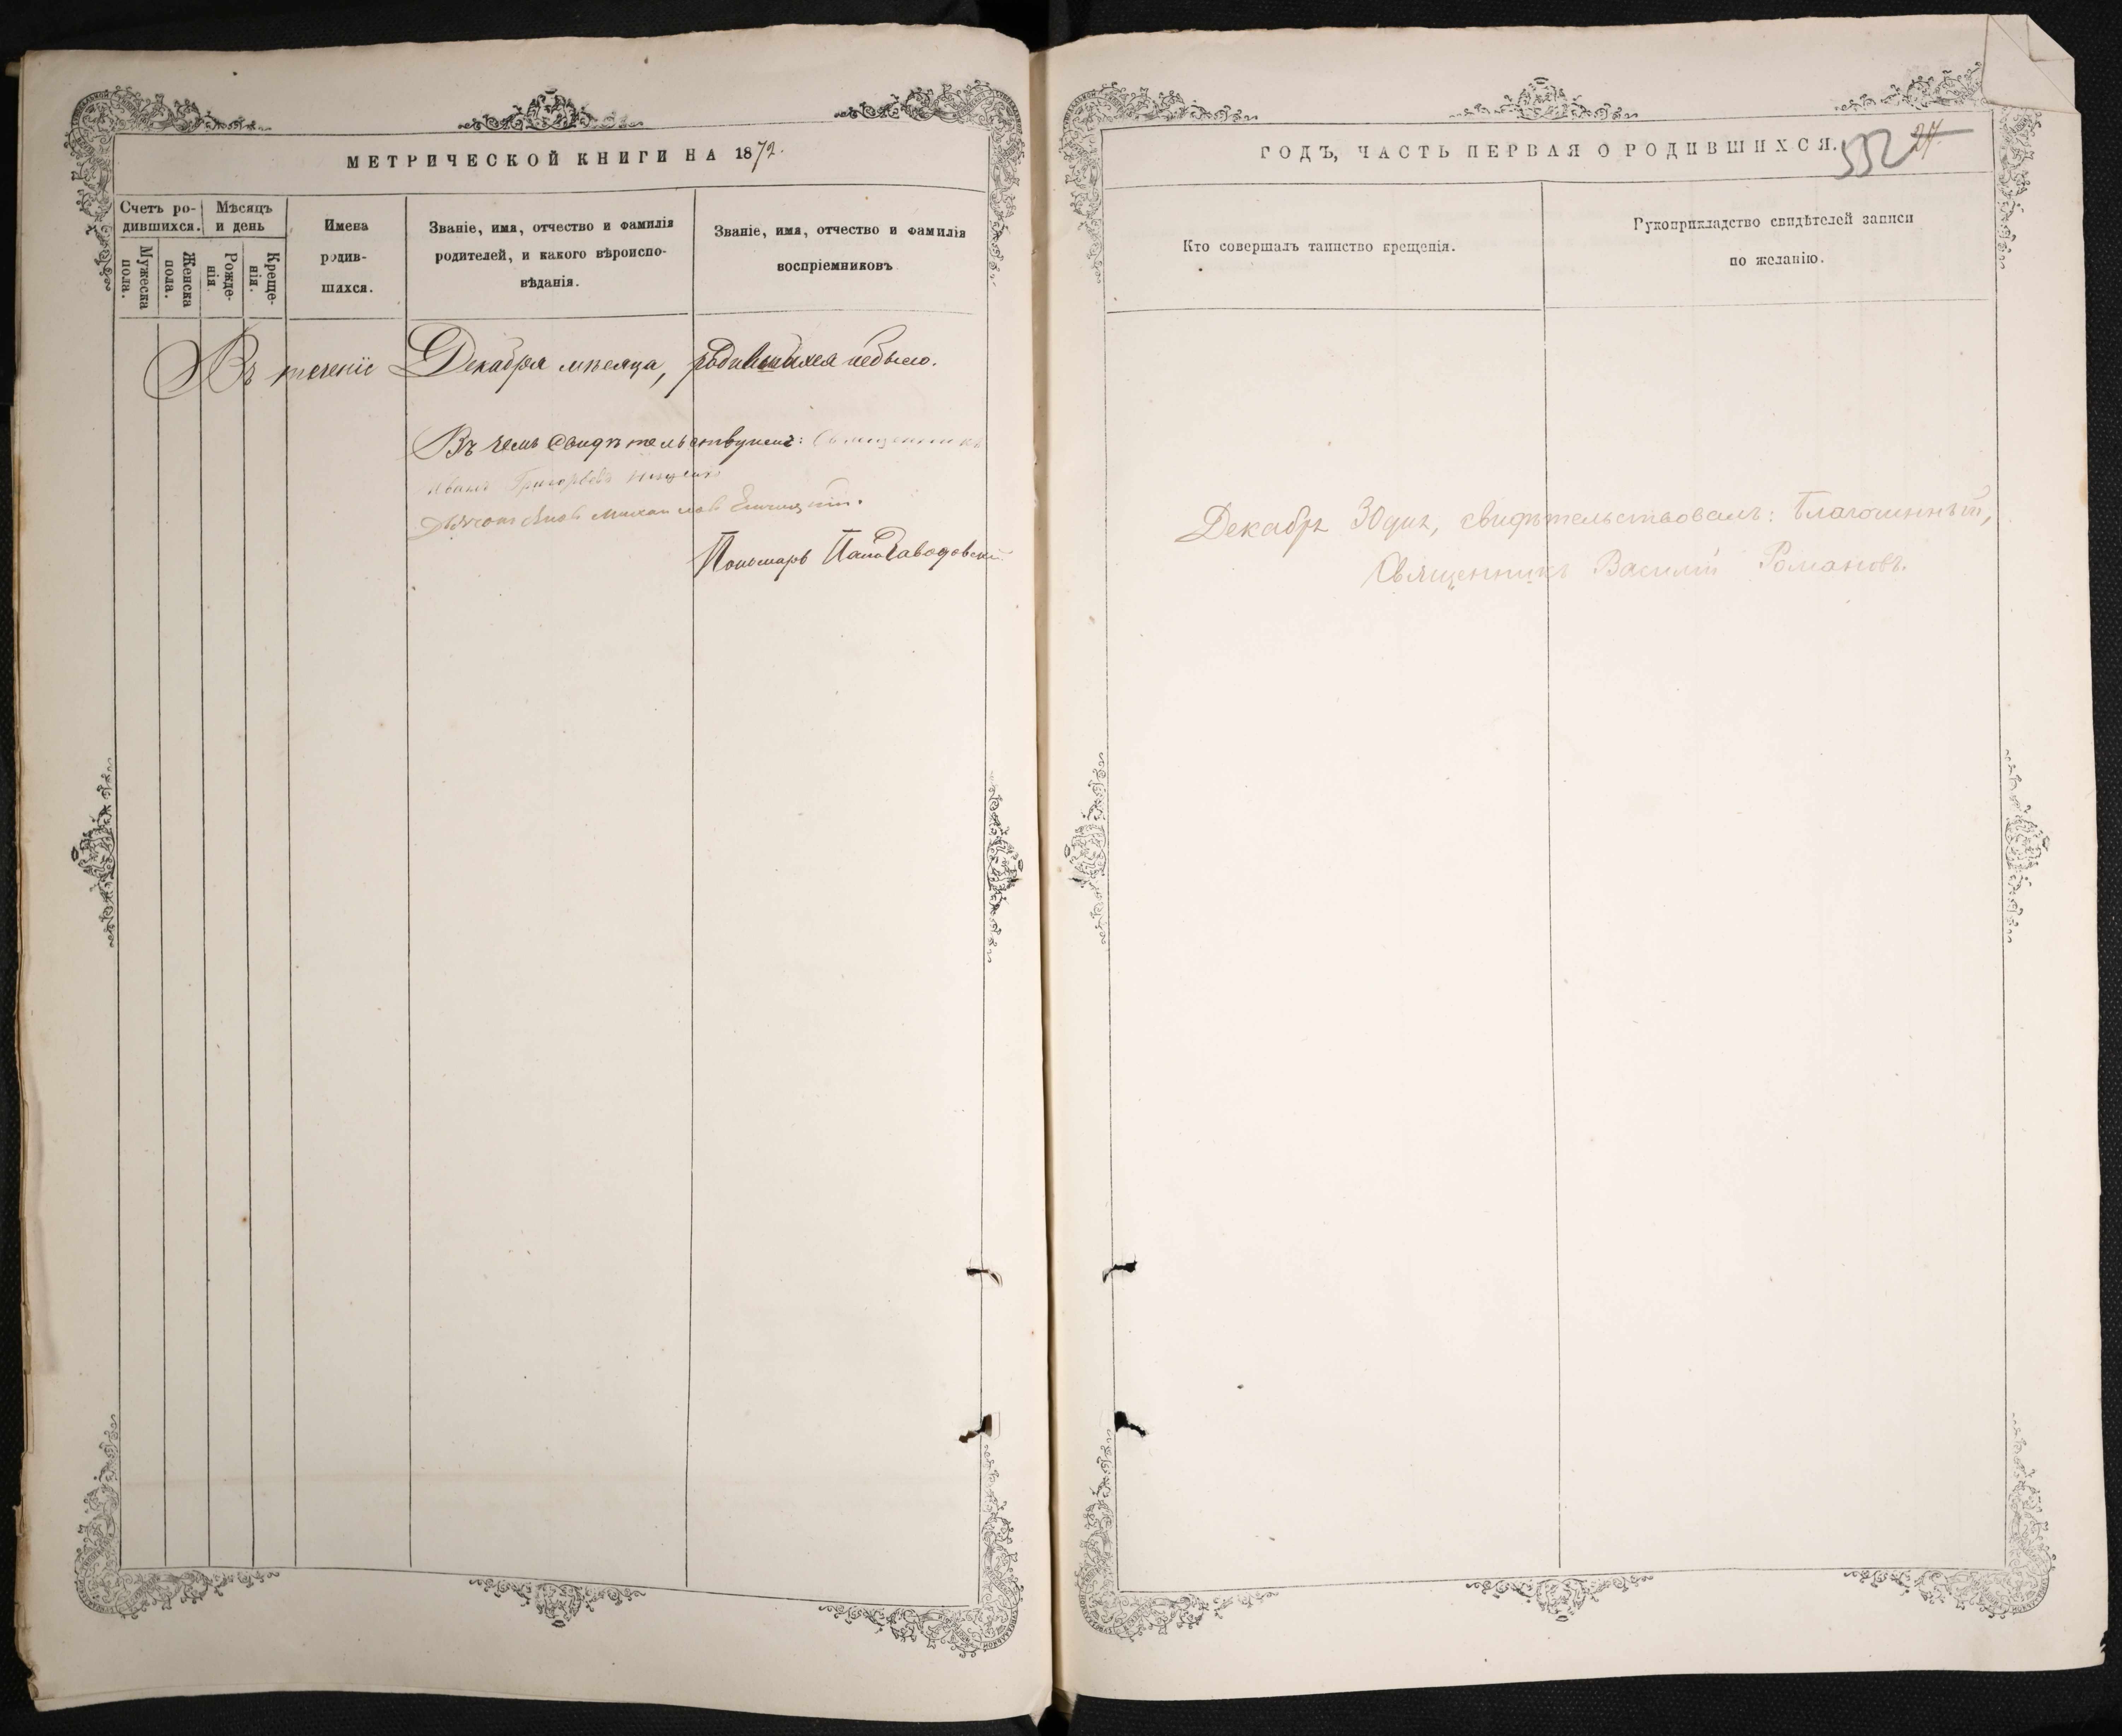 МЕТРИЧЕСКОЙ КНИГИ НА 1872.
Счетъ ро-
дившихся.
Мужеска
пола.
Женска
пола.
Мѣсяцъ
и день
Рожде-
нія.
Креще-
нія.
Имена
родив-
шихся.
Званіе, имя, отчество и фамилія
родителей, и какого вѣроиспо-
вѣданія.
Званіе, имя, отчество и фамилія
воспріемниковъ
Въ теченіе Декабря мѣсяца, родившихся небыло.
Въ чемъ свидѣтельствуемъ: Священникъ
Иванъ Григорьевъ
Дьячокъ Яковъ Михаиловъ
Пономарь Заводовскій
ГОДЪ, ЧАСТЬ ПЕРВАЯ О РОДИВШИХСЯ.
552 24
Кто совершалъ таинство крещенія.
Рукоприкладство свидѣтелей записи
по желанію.
Декабря 30 дня, свидѣтельствовалъ: Благочинный,
Священникъ Василій Романовъ.